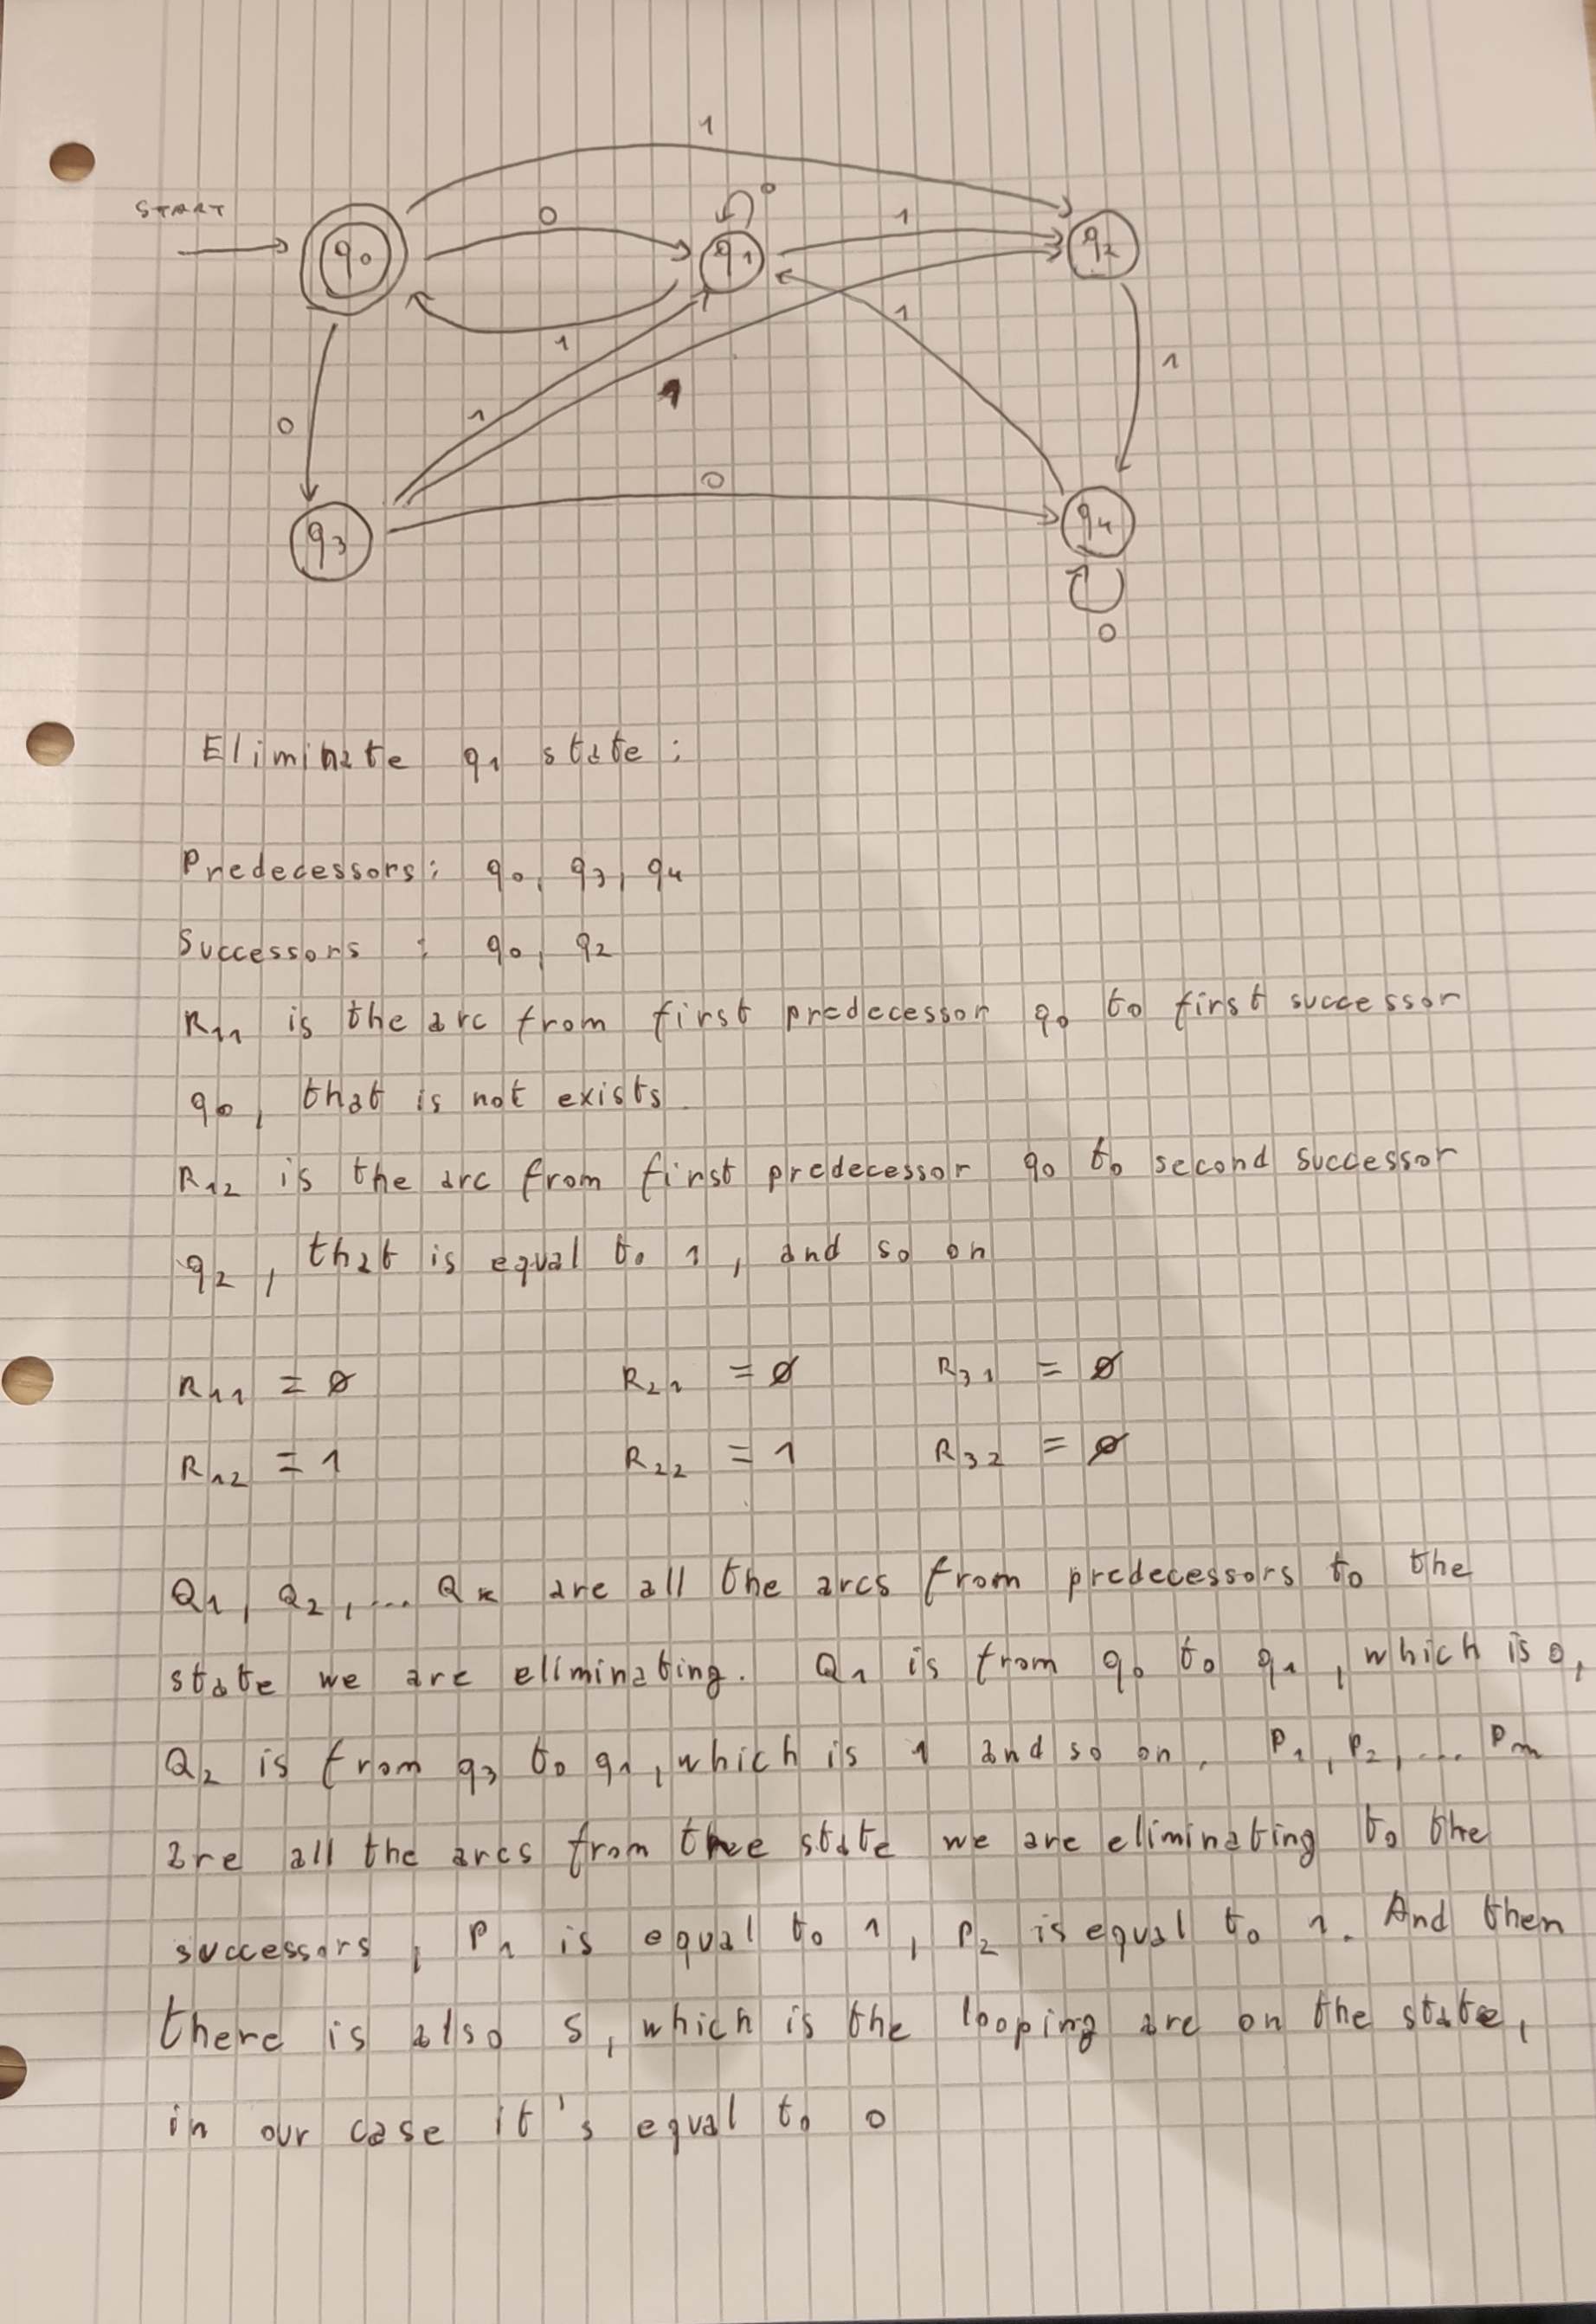 1
START
0
0
1
q0
q1
q2
1
1
1
0
1
1
0
q3
q4
0
Eliminate q1 state :
Predecessors : q0, q3, q4
Successors : q0, q2
R11 is the arc from first predecessor q0 to first successor
q0, that is not exists.
R12 is the arc from first predecessor q0 to second successor
q2, that is equal to 1, and so on
R11 = ∅ R21 = ∅ R31 = ∅
R12 = 1 R22 = 1 R32 = ∅
Q1, Q2, ... Qk are all the arcs from predecessors to the
state we are eliminating. Q1 is from q0 to q1, which is 0,
Q2 is from q3 to q1, which is 1 and so on. P1, P2, ... Pm
are all the arcs from the state we are eliminating to the
successors, P1 is equal to 1, P2 is equal to 1. And then
there is also S, which is the looping arc on the state,
in our case it's equal to 0